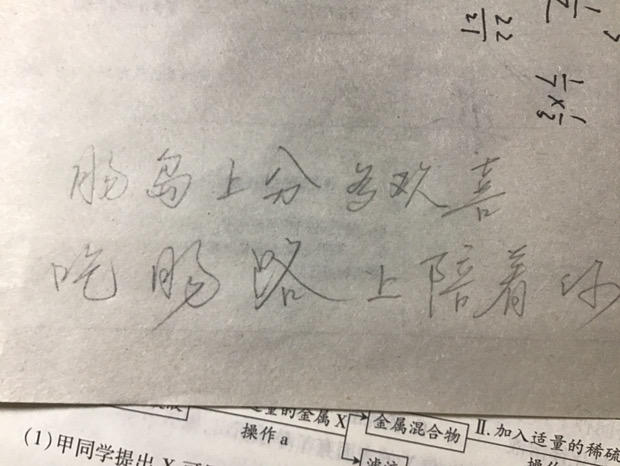 22
21
1/7 ×
肠岛上分多欢喜
吃肠路上陪着你
量的金属X 金属混合物 Ⅱ.加入适量的稀硫
操作a
(1)甲同学提出X